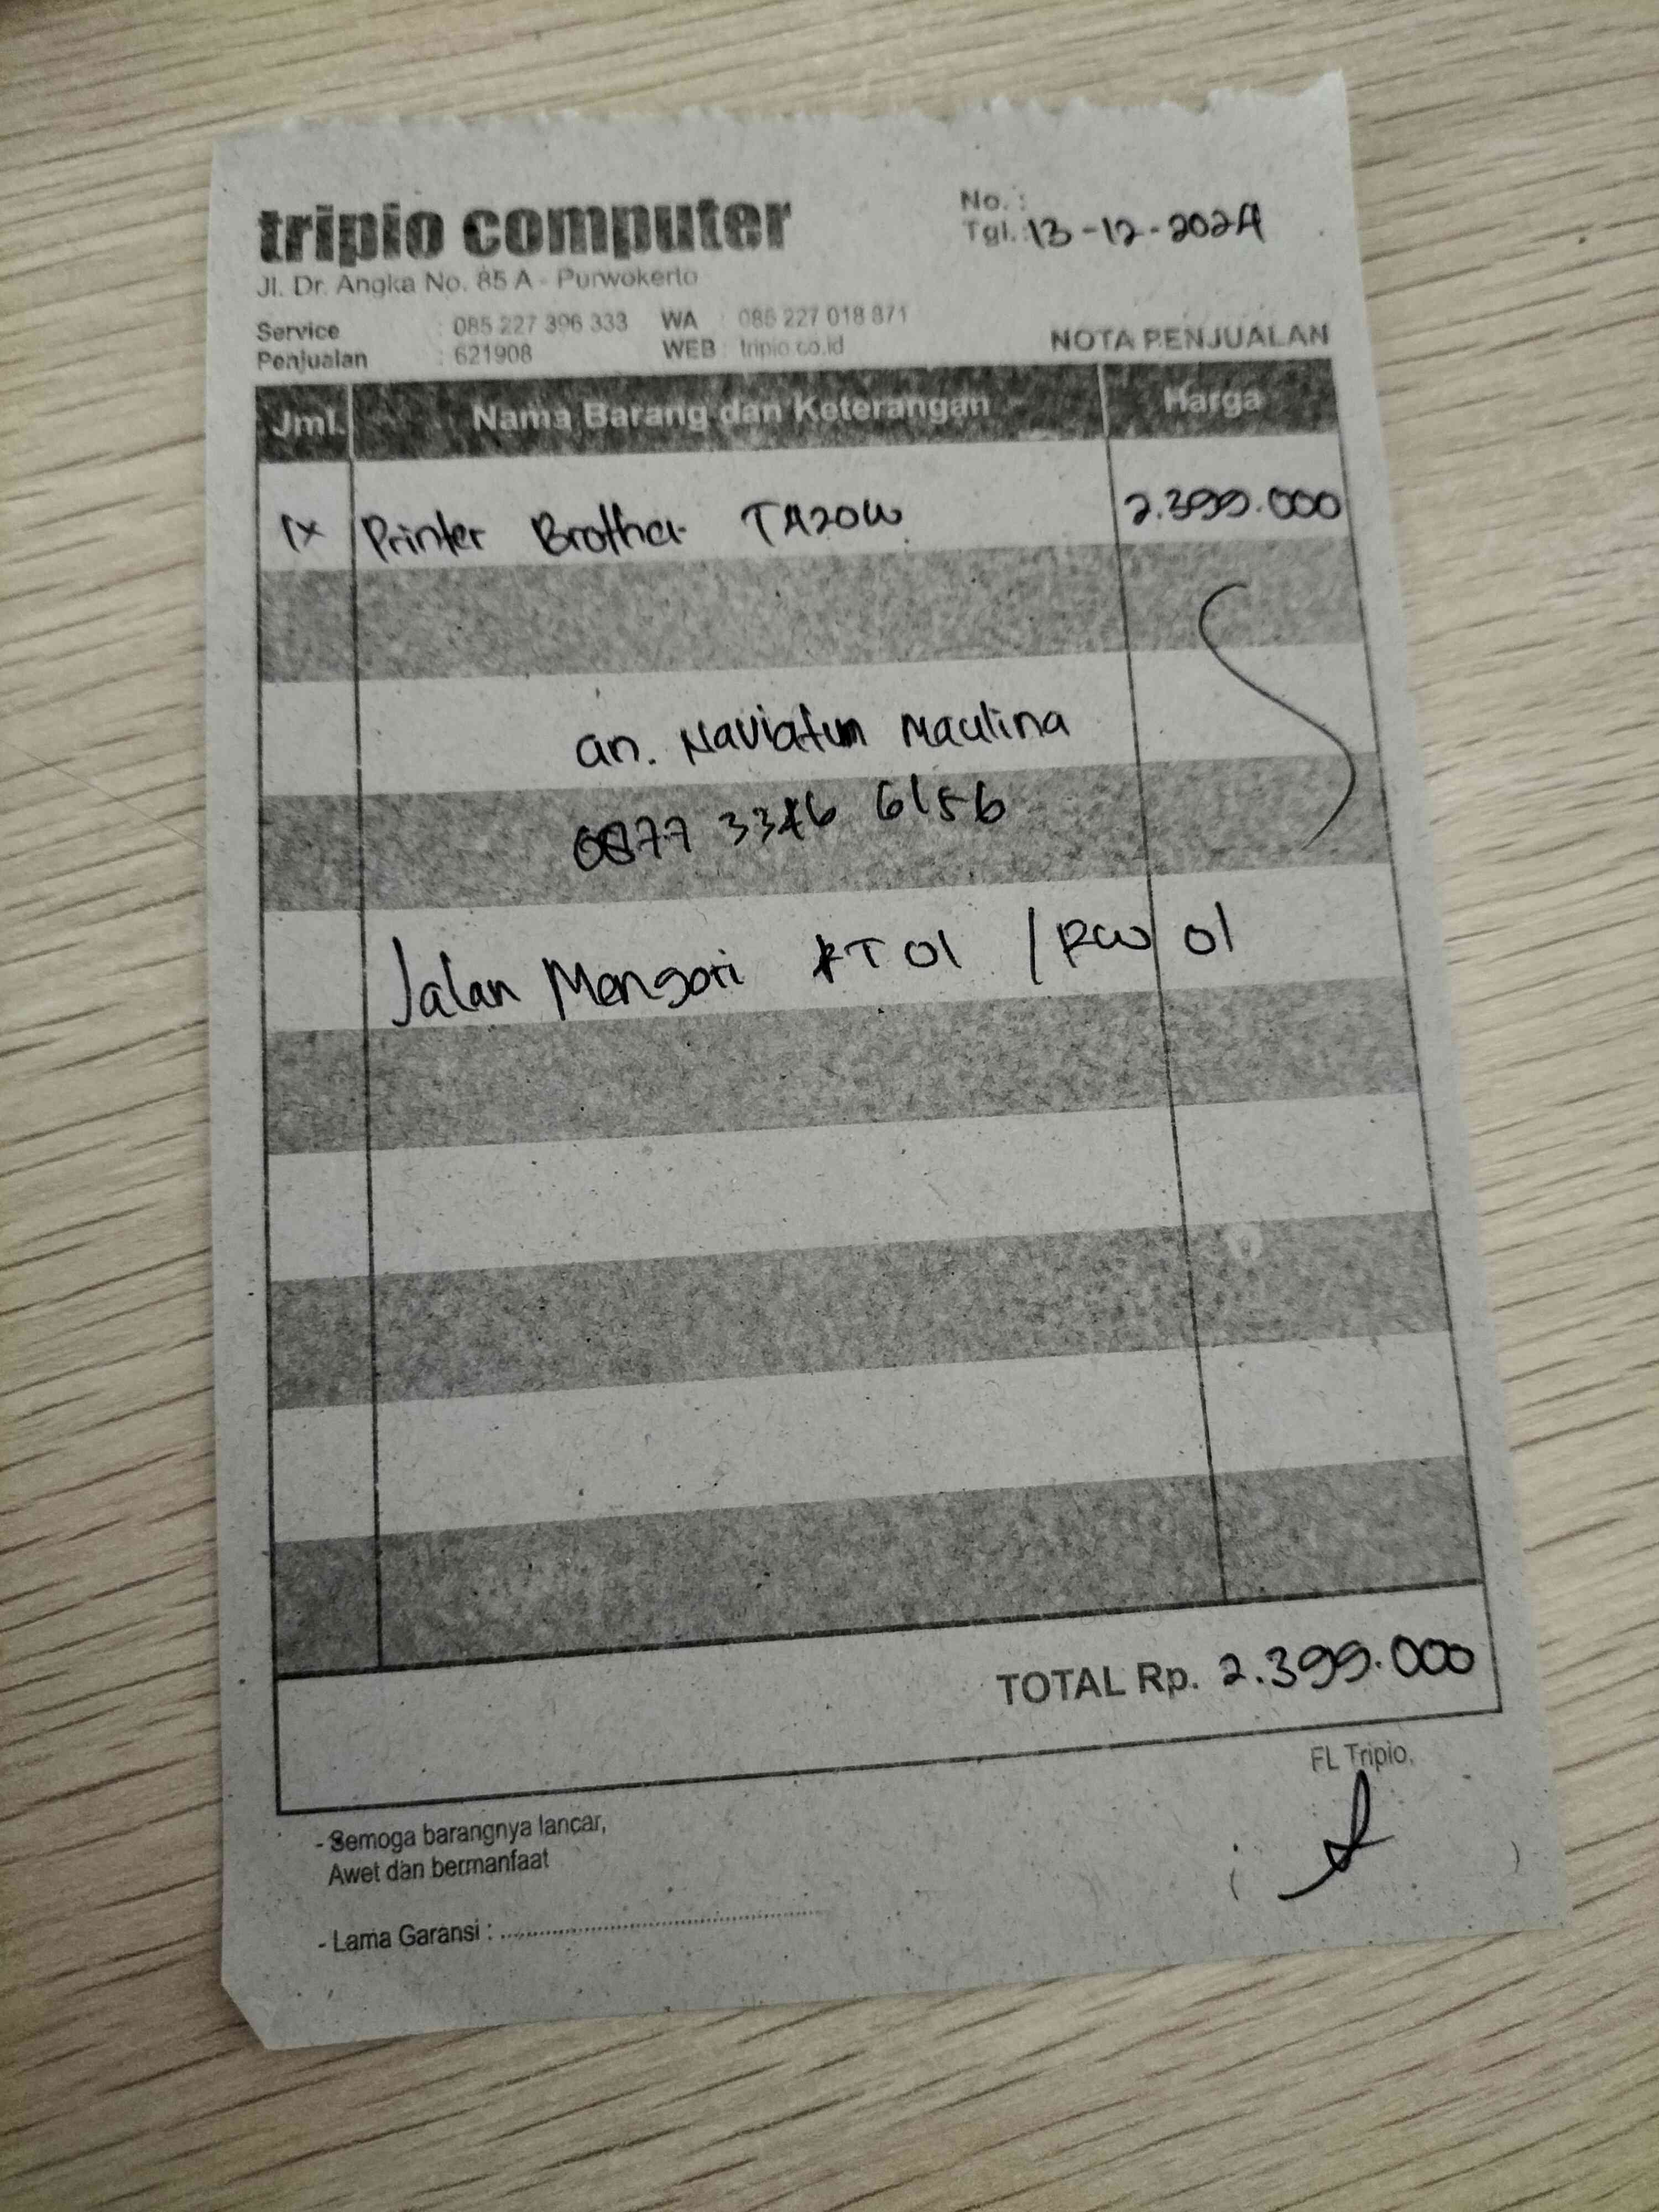 tripio computer
Jl. Dr. Angka No. 85 A - Purwokerto
No. :
Tgl. : 13-12-2024
Service : 085 227 396 333 WA : 085 227 018 871
Penjualan : 621908 WEB : tripio.co.id
NOTA PENJUALAN
Jml. Nama Barang dan Keterangan Harga
1x Printer Brother T420W 2.399.000
an. Naviatun Maulina
0877 3346 6156
Jalan Mengori RT 01 / RW 01
TOTAL Rp. 2.399.000
FL Tripio,
- Semoga barangnya lancar,
Awet dan bermanfaat
( )
- Lama Garansi : ........................